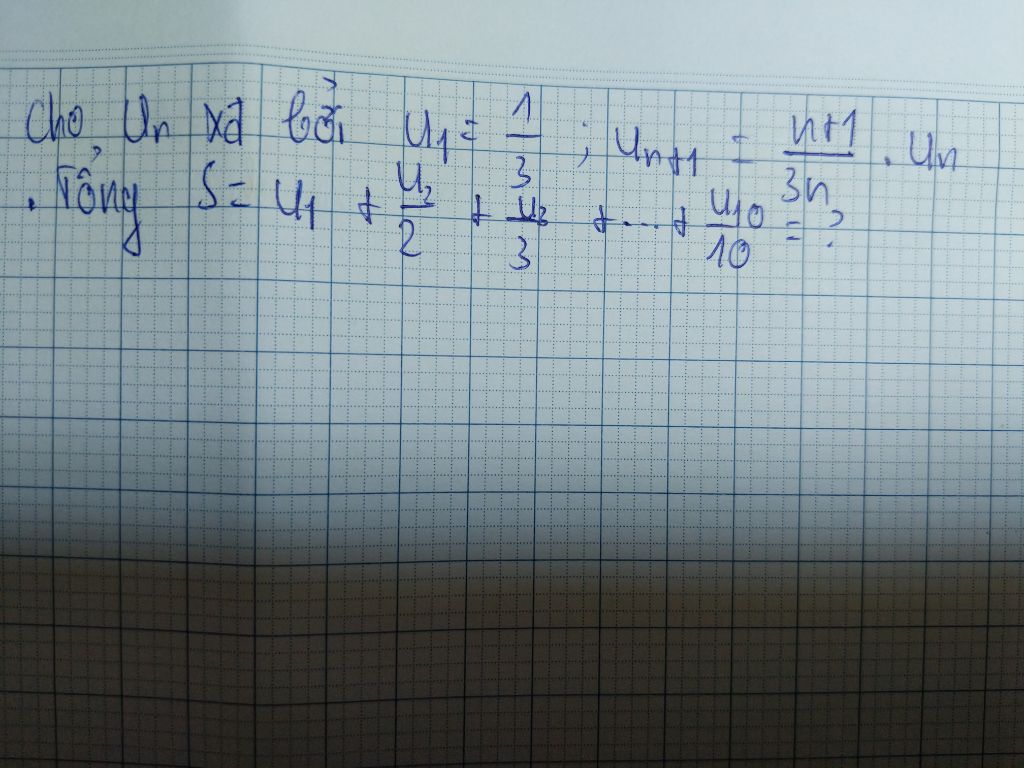 Cho Un xđ bởi u₁ = 1/3 ; uₙ₊₁ = (n+1)/(3n) . Un
. Tổng S = u₁ + u₂/2 + u₃/3 + ... + u₁₀/10 = ?